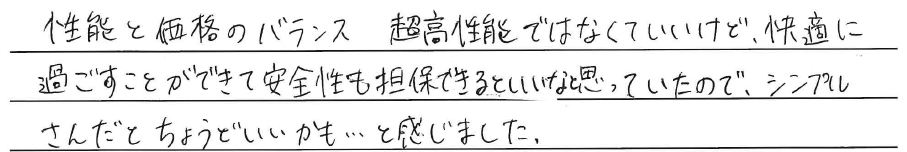 性能と価格のバランス　超高性能ではなくていいけど、快適に
過ごすことができて安全性も担保できるといいなと思っていたので、シンプル
さんだとちょうどいいかも…と感じました。